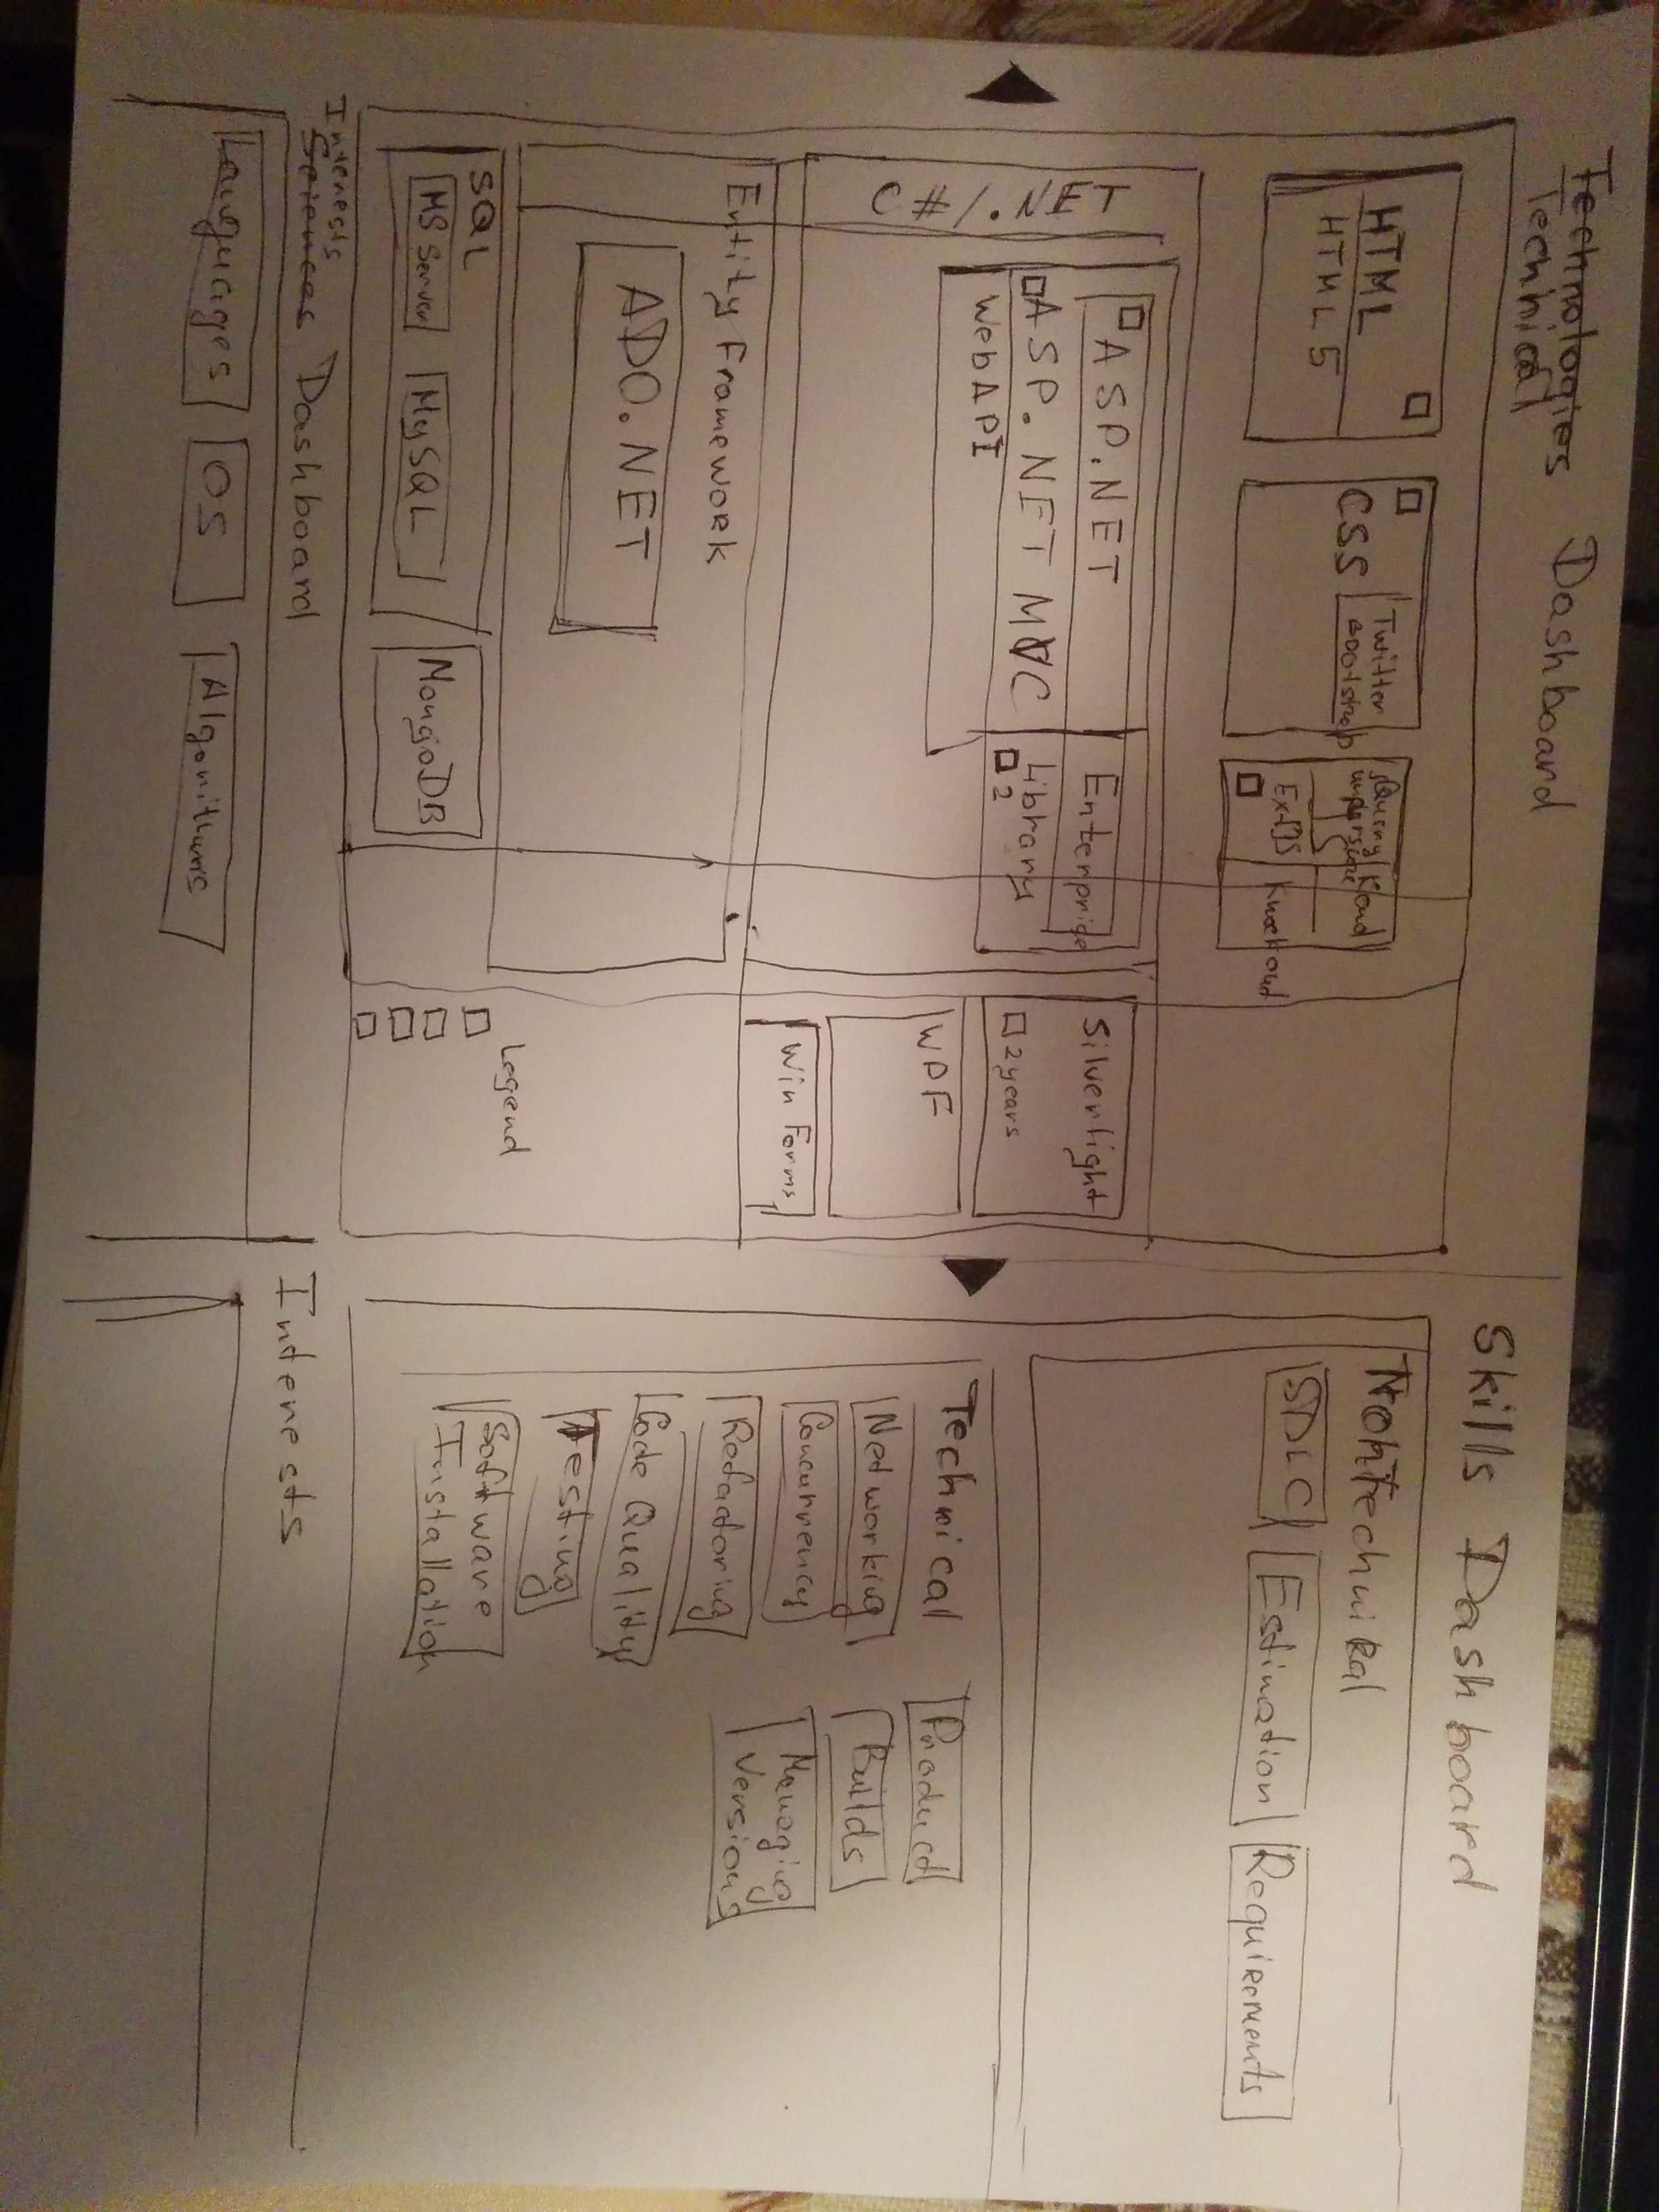 Technologies Dashboard
Technical
HTML
HTML 5
CSS
Twitter
Bootstrap
jQuery
ExtJS
Kend
Knockout
C#/.NET
ASP.NET
ASP.NET MVC
WebAPI
Enterprise
Library
2
Silverlight
2 years
WPF
Win Forms
Entity Framework
ADO.NET
SQL
MS Server
MySQL
MongoDB
Legend
Interests
Dashboard
Languages
OS
Algorithms
Skills Dashboard
NonTechnical
SDLC
Estimation
Requirements
Technical
Networking
Concurrency
Refactoring
Code Quality
Testing
Software
Installation
Product
Builds
Managing
Versions
Interests